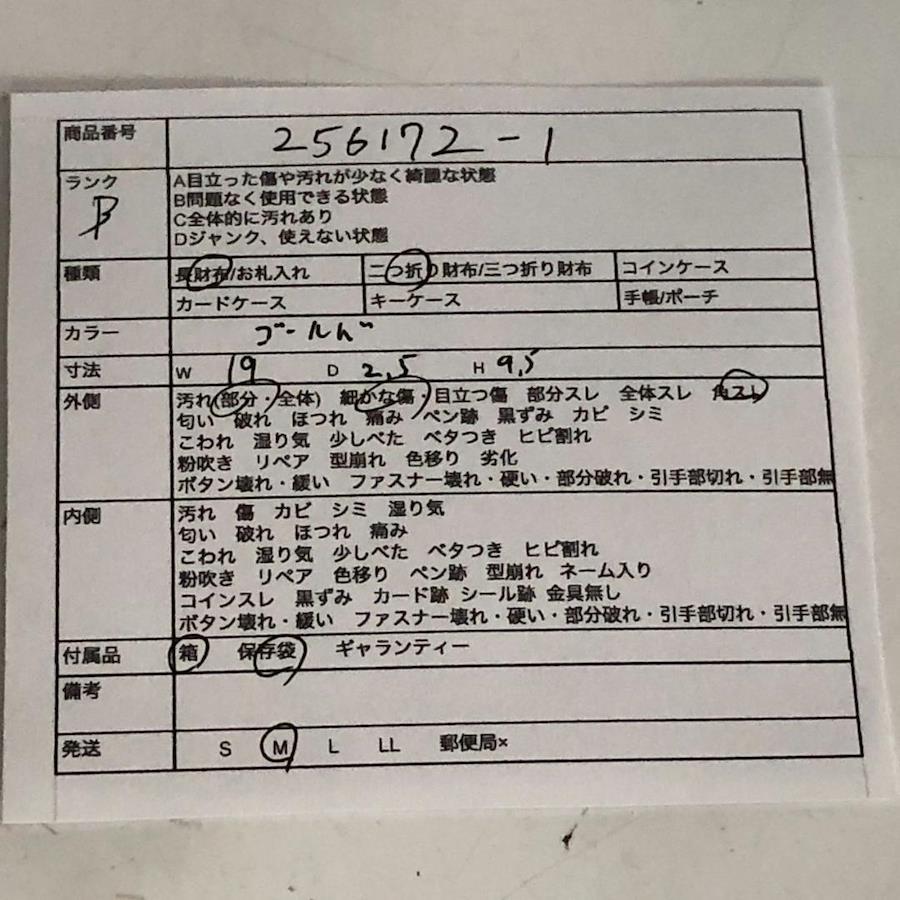 商品番号 256172-1
ランク A目立った傷や汚れが少なく綺麗な状態
B B問題なく使用できる状態
C全体的に汚れあり
Dジャンク、使えない状態
種類 長財布/お札入れ 二つ折り財布/三つ折り財布 コインケース
カードケース キーケース 手帳/ポーチ
カラー ゴールド
寸法 W 19 D 2,5 H 9,5
外側 汚れ(部分・全体) 細かな傷・目立つ傷 部分スレ 全体スレ 角スレ
匂い 破れ ほつれ 痛み ペン跡 黒ずみ カビ シミ
こわれ 湿り気 少しべた ベタつき ヒビ割れ
粉吹き リペア 型崩れ 色移り 劣化
ボタン壊れ・緩い ファスナー壊れ・硬い・部分破れ・引手部切れ・引手部無
内側 汚れ 傷 カビ シミ 湿り気
匂い 破れ ほつれ 痛み
こわれ 湿り気 少しべた ベタつき ヒビ割れ
粉吹き リペア 色移り ペン跡 型崩れ ネーム入り
コインスレ 黒ずみ カード跡 シール跡 金具無し
ボタン壊れ・緩い ファスナー壊れ・硬い・部分破れ・引手部切れ・引手部無
付属品 箱 保存袋 ギャランティー
備考
発送 S M L LL 郵便局×